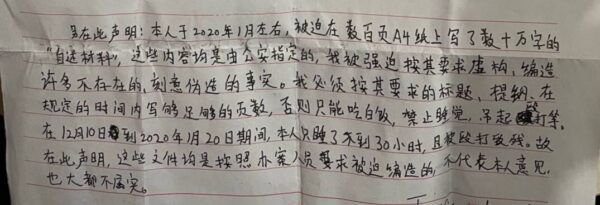 另在此声明：本人于2020年1月左右，被迫在数百页A4纸上写了数十万字的
“自述材料”，这些内容均是由公安指定的，我被强迫按其要求虚构，编造
许多不存在的，刻意伪造的事实。我必须按其要求的标题、提纲、在
规定的时间内写够足够的页数，否则只能吃白饭，禁止睡觉，吊起殴打等。
在12月10日到2020年1月20日期间，本人只睡了不到30小时，且被殴打致残。故
在此声明，这些文件均是按照办案人员要求被迫编造的，不代表本人意见，
也大都不属实。